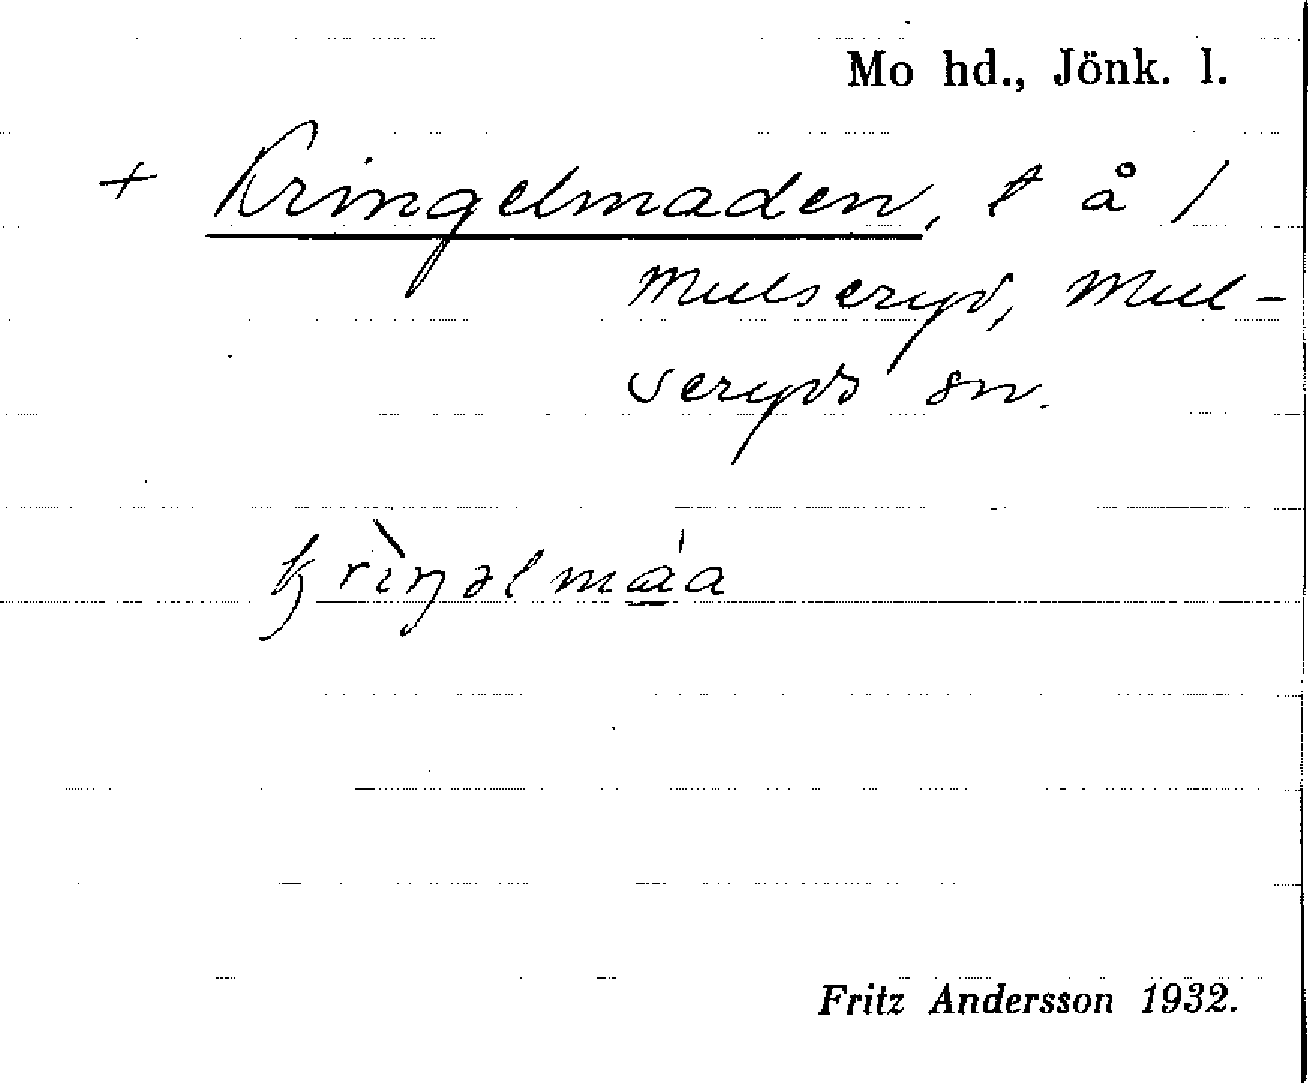 Mo hd., Jönk. l.
+ Kringelmaden, t å /
Mulseryd, Mul-
seryds sn.
krìŋəlmáa
Fritz Andersson 1932.